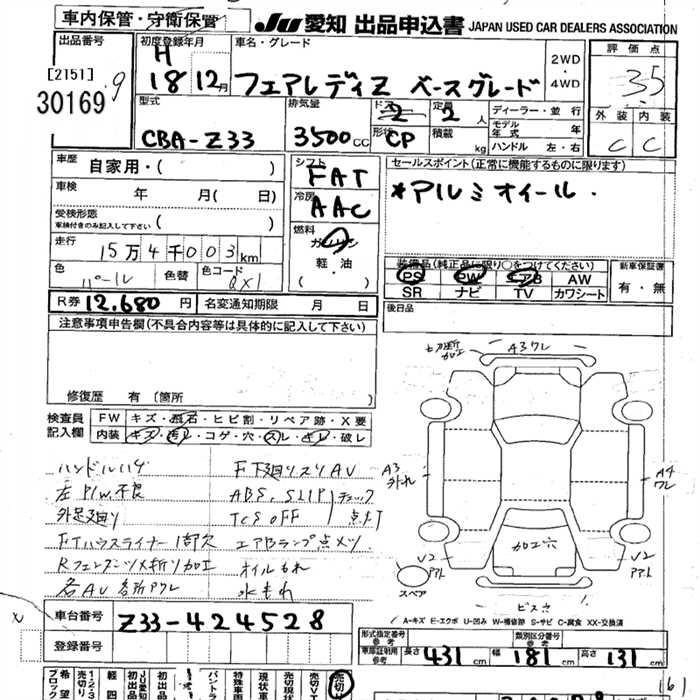 車内保管・守衛保管
JU 愛知 出品申込書 JAPAN USED CAR DEALERS ASSOCIATION
出品番号
[2151]
30169
9
初度登録年月
H
18 12月
車名・グレード
フェアレディZ ベースグレード
2WD
・
4WD
評価点
3.5
型式
CBA-Z33
排気量
3500cc
ドア
2
定員
2人
形状
CP
積載
kg
ディーラー・並行
モデル年式 年
ハンドル 左・右
外装 内装
C C
車歴
自家用・( )
車検
年 月( 日)
受検形態
車検付きのみ記入して下さい ( )
走行
15万4千003km
色
パール
色替
色コード
QX1
シフト
FAT
冷房
AAC
燃料
ガソリン
軽・油
( )
セールスポイント(正常に機能するものに限ります)
*アルミオイール.
装備品(純正品に限り○をつけてください)
PS PW エアB AW
SR ナビ TV カワシート
新車保証書
有・無
後日品
R券 12.680 円
名変通知期限 月 日
注意事項申告欄(不具合内容等は具体的に記入して下さい)
修復歴 有〔箇所 〕
検査員
記入欄
FW キズ・飛石・ヒビ割・リペア跡・X要
内装 キズ・汚レ・コゲ・穴・スレ・キレ・破レ
ハンドルハゲ
左P/W不良
外足廻り
FTハウスライナー1部欠
Rフェンダーツメ折り加工
各AU 各所アクレ
F下廻りスリAU
ABS, SLIP チェック
TCS OFF 点灯
エアBランプ点メツ
オイルもれ
水もれ
切断
加工
A3ワレ
A3
外れ
A4
ワレ
加工穴
U2
アト
U2
アト
ビスさ
スペア
A-キズ E-エクボ U-凹み W-補修跡 S-サビ C-腐食 XX-交換済
車台番号
Z33-424528
登録番号
形式指定番号
参考
類別区分番号
参考
車庫証明用
参考
長さ 431cm 幅 181cm 高さ 131cm
希望
ブロック
売切り
1・2・3
軽四
JU愛知
初出品
パントラ
特殊車両
現状車
売切現状
売切
161